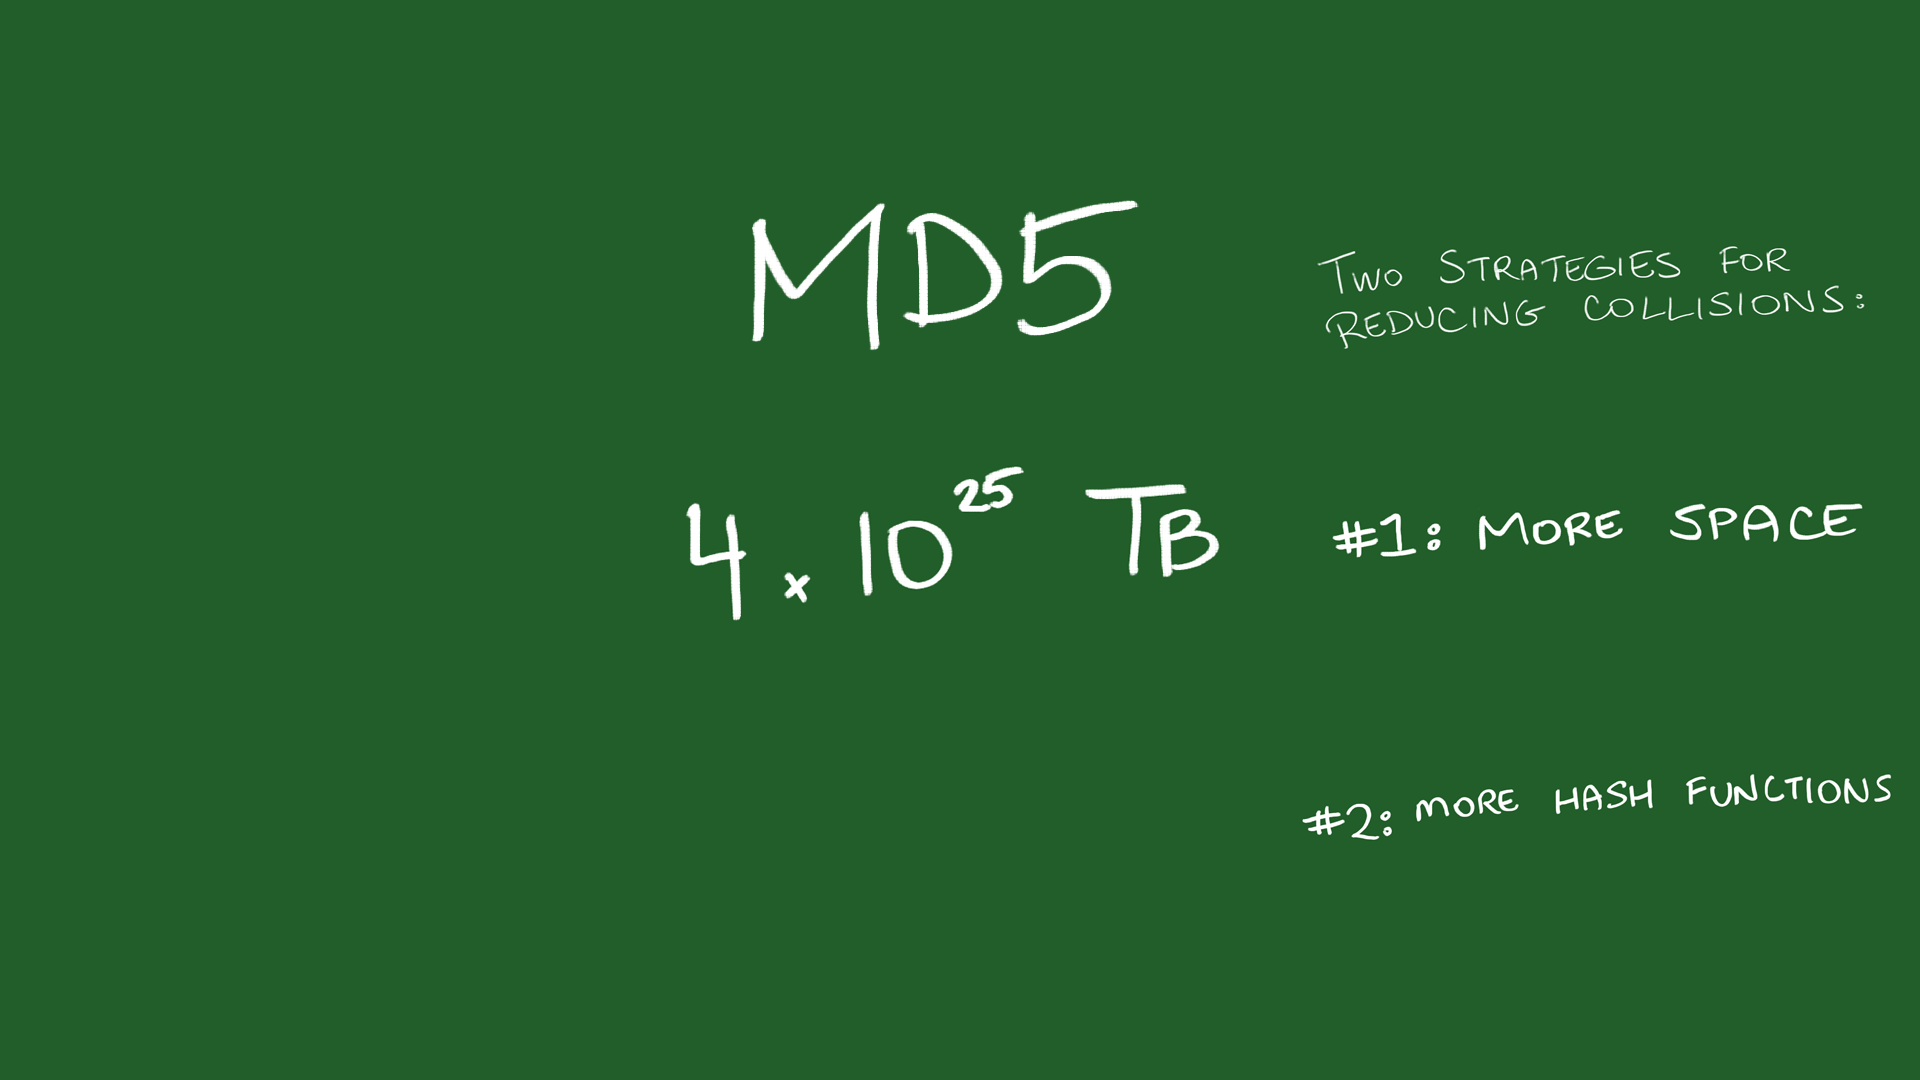 MD5
4 x 10^25 TB
TWO STRATEGIES FOR
REDUCING COLLISIONS:
#1: MORE SPACE
#2: MORE HASH FUNCTIONS